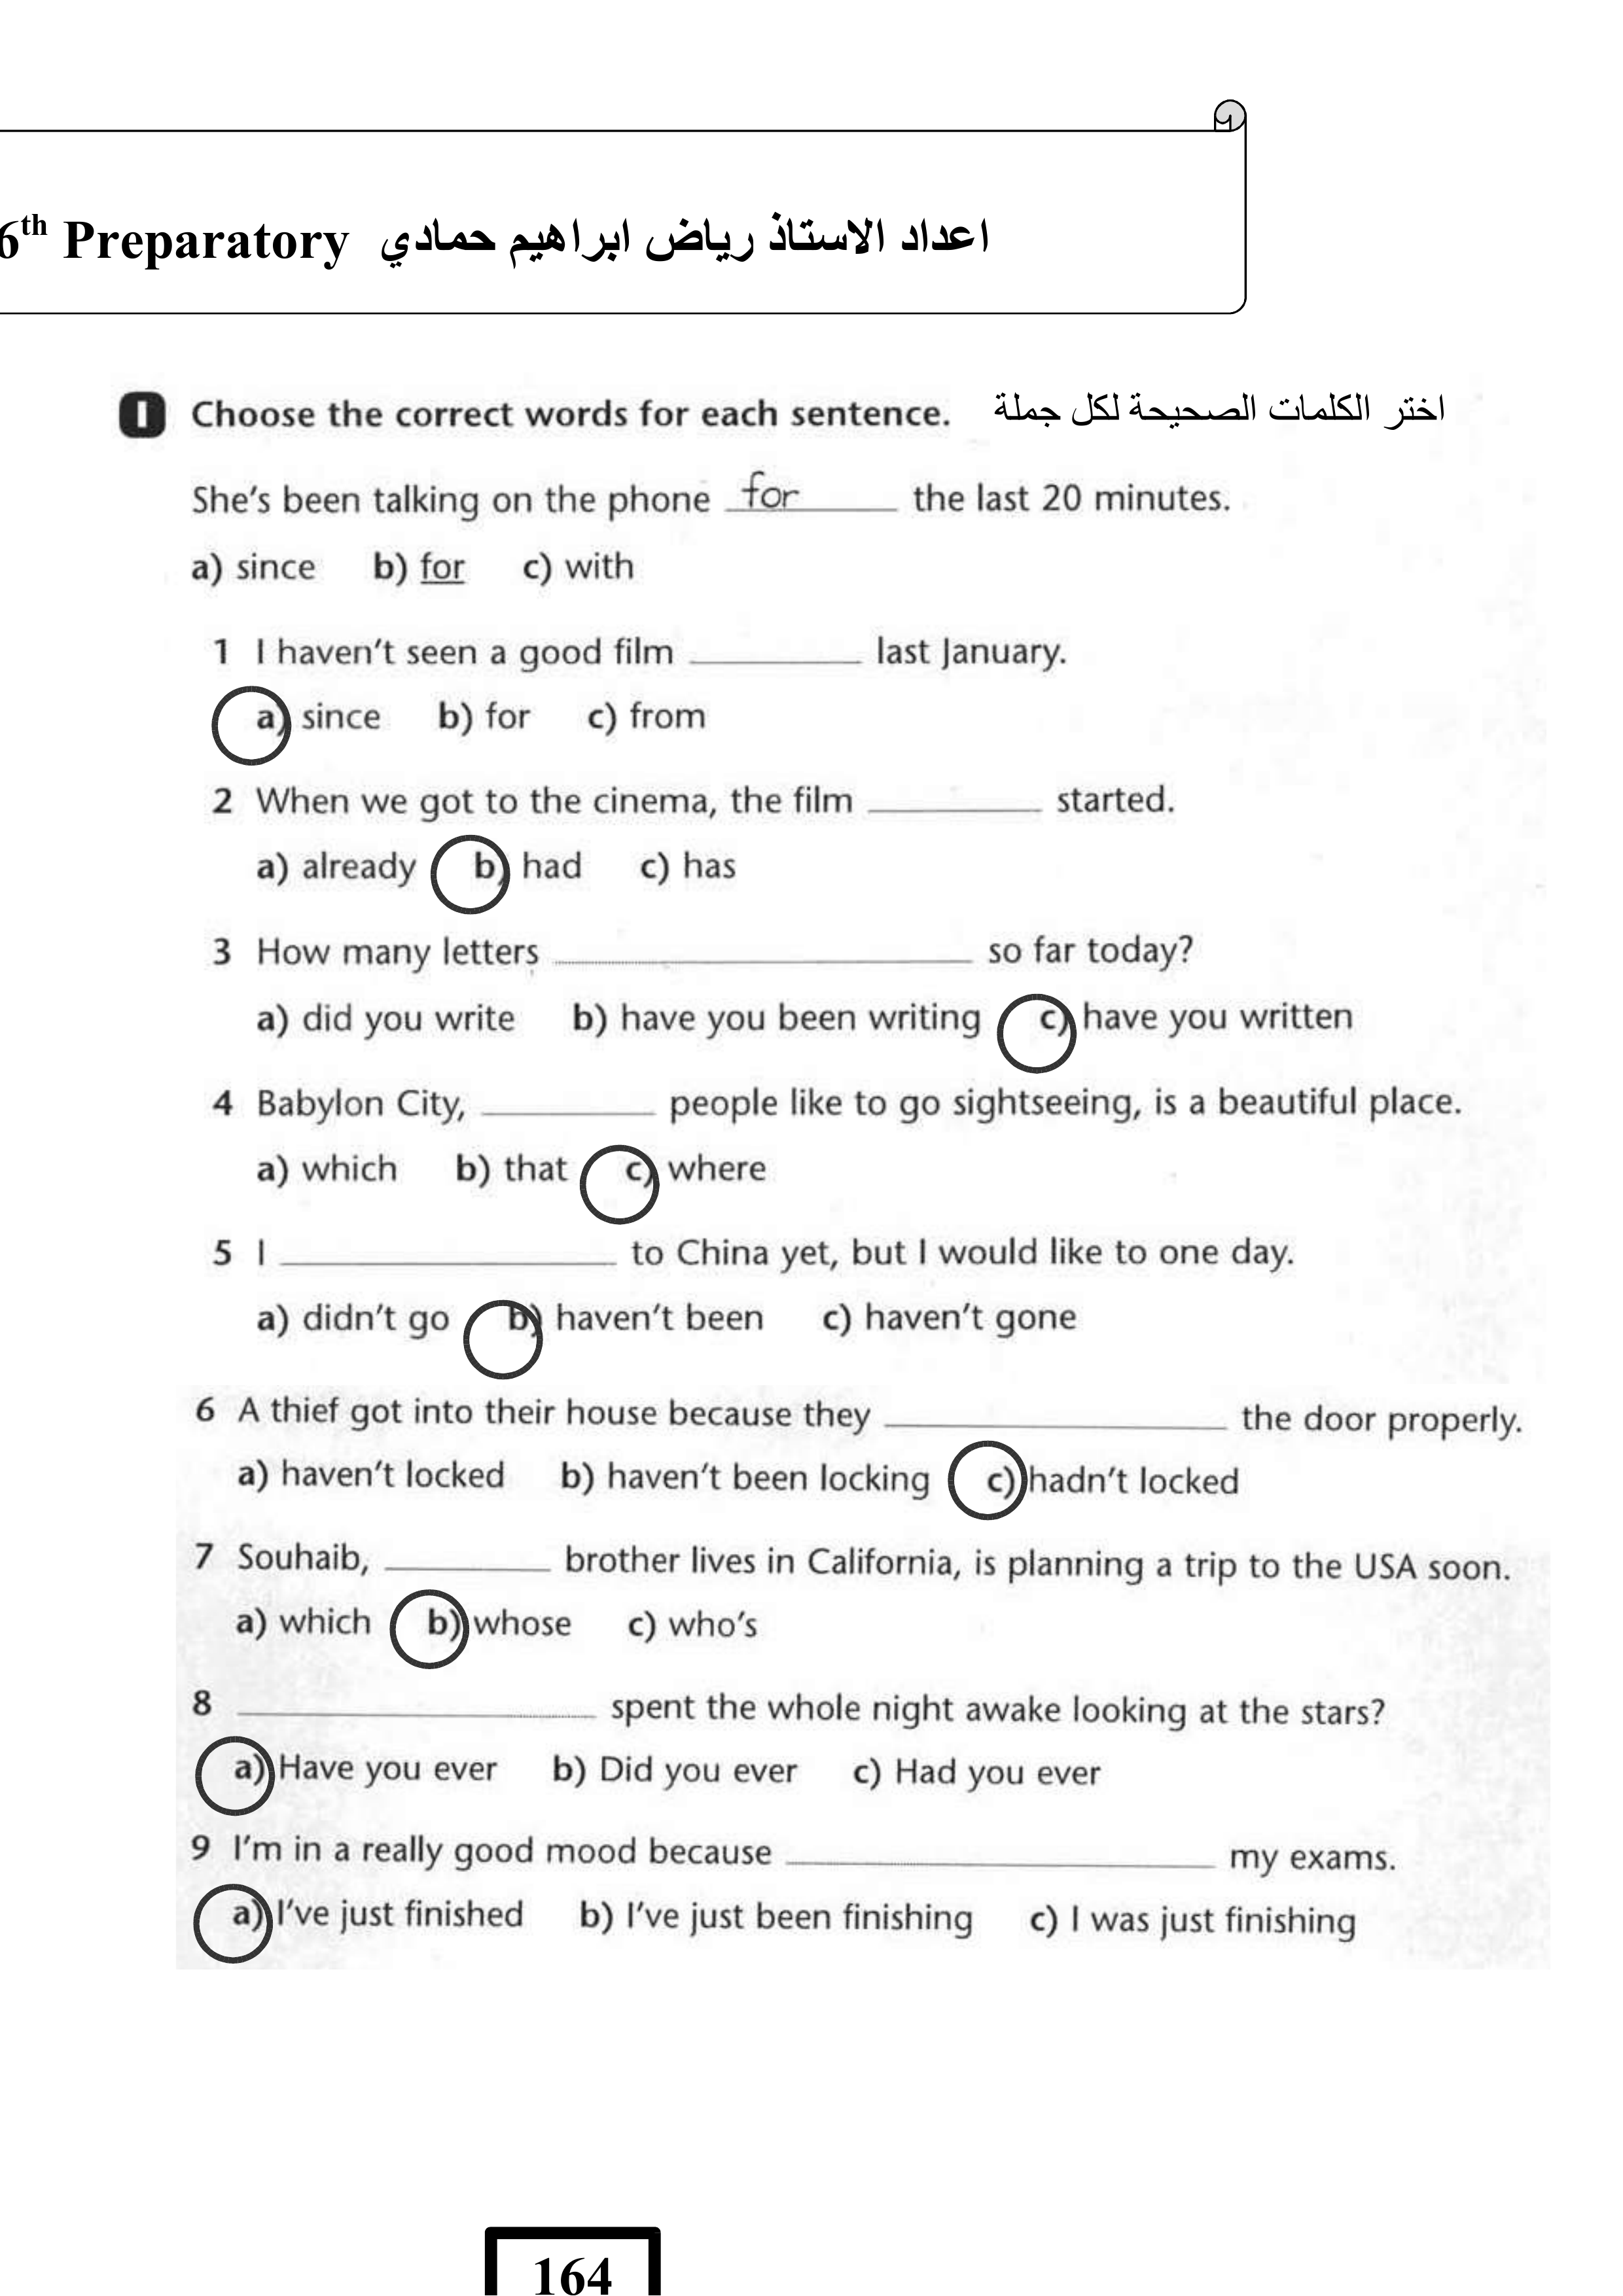 6th Preparatory اعداد الاستاذ رياض ابراهيم حمادي
1 Choose the correct words for each sentence. اختر الكلمات الصحيحة لكل جملة
She's been talking on the phone for the last 20 minutes.
a) since b) for c) with
1 I haven't seen a good film ________ last January.
a) since b) for c) from
2 When we got to the cinema, the film ________ started.
a) already b) had c) has
3 How many letters ________ so far today?
a) did you write b) have you been writing c) have you written
4 Babylon City, ________ people like to go sightseeing, is a beautiful place.
a) which b) that c) where
5 I ________ to China yet, but I would like to one day.
a) didn't go b) haven't been c) haven't gone
6 A thief got into their house because they ________ the door properly.
a) haven't locked b) haven't been locking c) hadn't locked
7 Souhaib, ________ brother lives in California, is planning a trip to the USA soon.
a) which b) whose c) who's
8 ________ spent the whole night awake looking at the stars?
a) Have you ever b) Did you ever c) Had you ever
9 I'm in a really good mood because ________ my exams.
a) I've just finished b) I've just been finishing c) I was just finishing
164